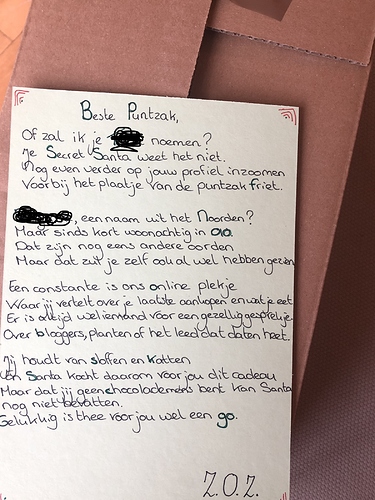 Beste Puntzak,
Of zal ik je noemen?
Je Secret Santa weet het niet.
Nog even verder op jouw profiel inzoomen
Voorbij het plaatje van de puntzak friet.
, een naam uit het Noorden?
Maar sinds kort woonachtig in
Dat zijn nog eens andere oorden
Maar dat zul je zelf ook al wel hebben gezien
Een constante is ons online plekje
Waar jij vertelt over je laatste aankopen en wat je eet
Er is altijd wel iemand voor een gezellig gesprekje
Over bloggers, planten of het leed dat daten heet.
Jij houdt van sloffen en katten
En Santa kocht daarom voor jou dit cadeau
Maar dat jij geen chocolademens bent kan Santa
nog niet bevatten.
Gelukkig is thee voor jou wel een go.
Z.O.Z.